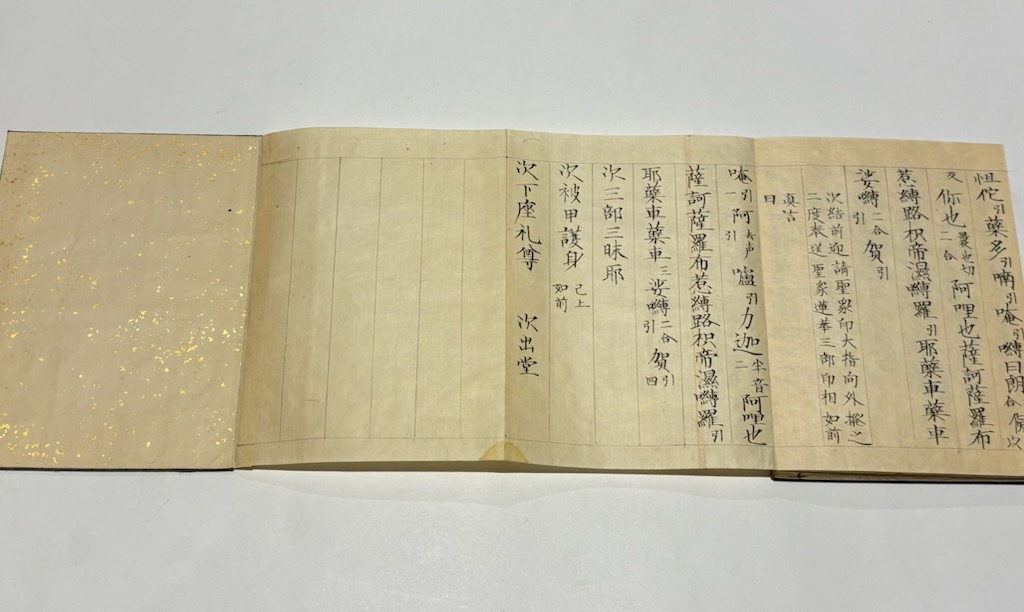 怛佗引蘖多引喃引唵引嚩日朗合
反你也二合阿哩也薩訶薩羅布
惹嚩路枳帝濕嚩羅引耶藥車藥車
娑嚩二合引賀引
次結前迎請聖衆印大指向外撥之
二度奉送聖衆蓮華三部印相如前
真言
曰
唵引一阿去声引嚧引力迦半音二阿哩也
薩訶薩羅布惹嚩路枳帝濕嚩羅引
耶藥車藥車三娑嚩二合引賀引四
次三部三昧耶
次被甲護身已上如前
次下座礼尊 次出堂